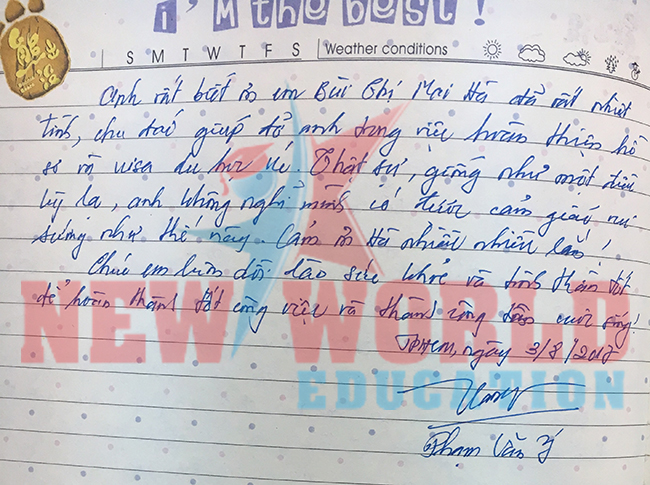 i'M the best!
S M T W T F S Weather conditions
Anh rất biết ơn em Bùi Thị Mai Hà đã rất nhiệt
tình, chu đáo giúp đỡ anh trong việc hoàn thiện hồ
sơ và visa du học Mỹ. Thật sự, giống như một điều
kỳ lạ, anh không nghĩ mình có được cảm giác vui
sướng như thế này. Cảm ơn Hà nhiều nhiều lắm!
Chúc em luôn dồi dào sức khoẻ và tinh thần tốt
để hoàn thành tốt công việc và thành công trong cuộc sống!
TPHCM, ngày 3/8/2017
Phạm Văn Ý
NEW WORLD
EDUCATION